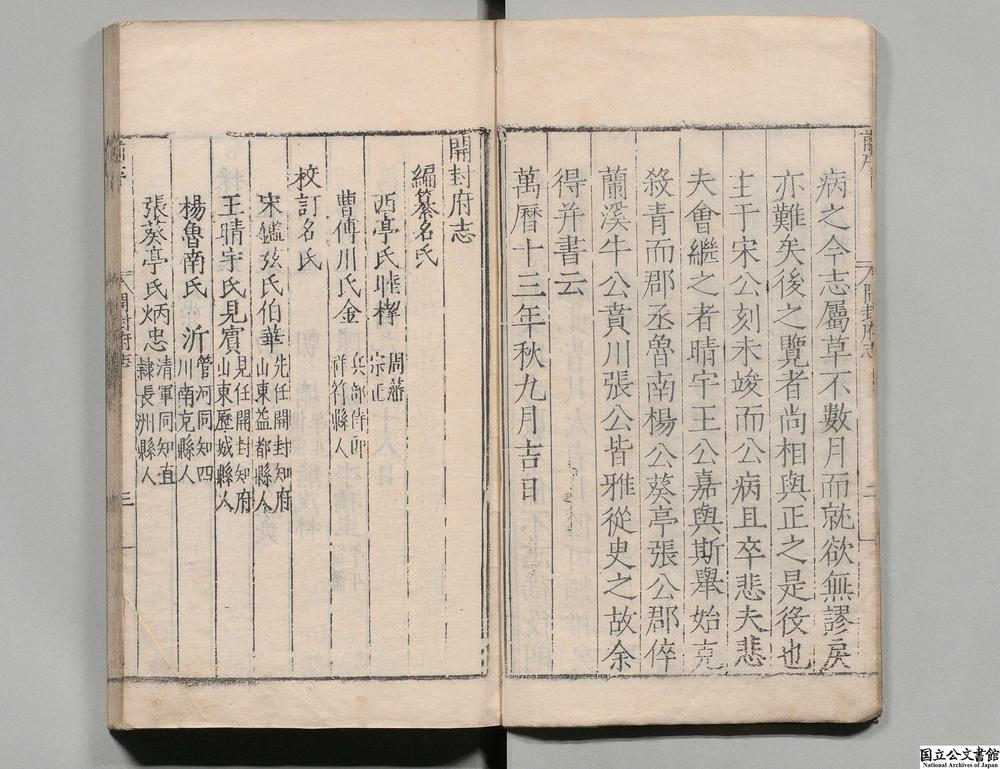 病之今志屬草不數月而就欲無謬戾
亦難矣後之覽者尚相與正之是役也
主于宋公刻未竣而公病且卒悲夫悲
夫會繼之者晴宇王公嘉與斯舉始克
殺青而郡丞魯南楊公葵亭張公郡倅
蘭溪牛公賁川張公皆雅從史之故余
得并書云
萬曆十三年秋九月吉日
開封府志
編纂名氏
西亭氏睦㮮 周藩宗正
曹傅川氏金 兵部侍郎祥符縣人
校訂名氏
宋鑑弦氏伯華 先任開封知府山東益都縣人
王晴宇氏見賓 見任開封知府山東歷城縣人
楊魯南氏沂 管河同知四川南充縣人
張葵亭氏炳忠 清軍同知直隸長洲縣人
開封府志
二
開封府志
三
国立公文書館
National Archives of Japan